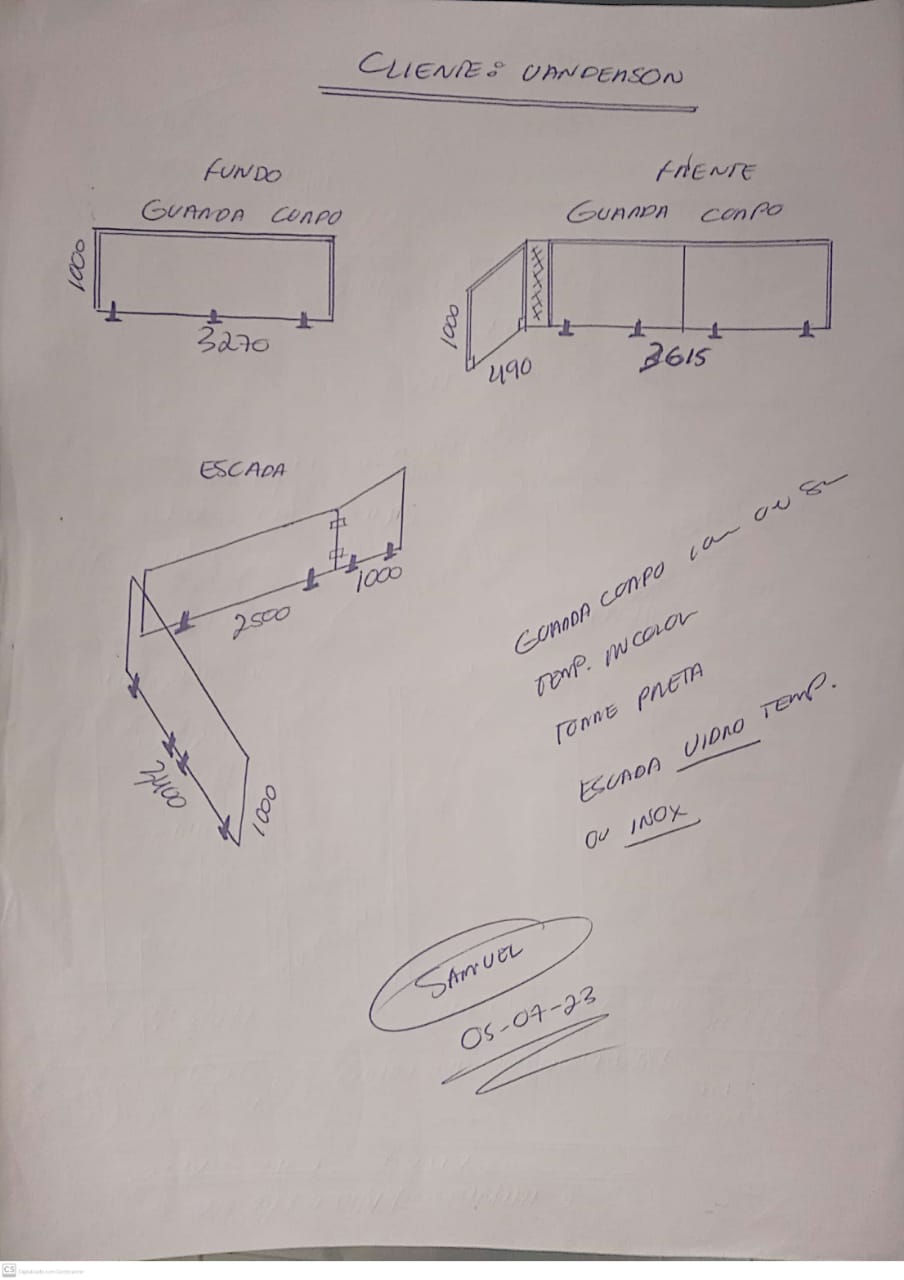 CLIENTE: VANDERSON
FUNDO
GUARDA CORPO
1000
3270
FRENTE
GUARDA CORPO
1000
490
3615
ESCADA
2500
1000
2400
1000
GUARDA CORPO COM OU S/
TEMP. INCOLOR
TORRE PRETA
ESCADA VIDRO TEMP.
OU INOX
SAMUEL
05-07-23
CS